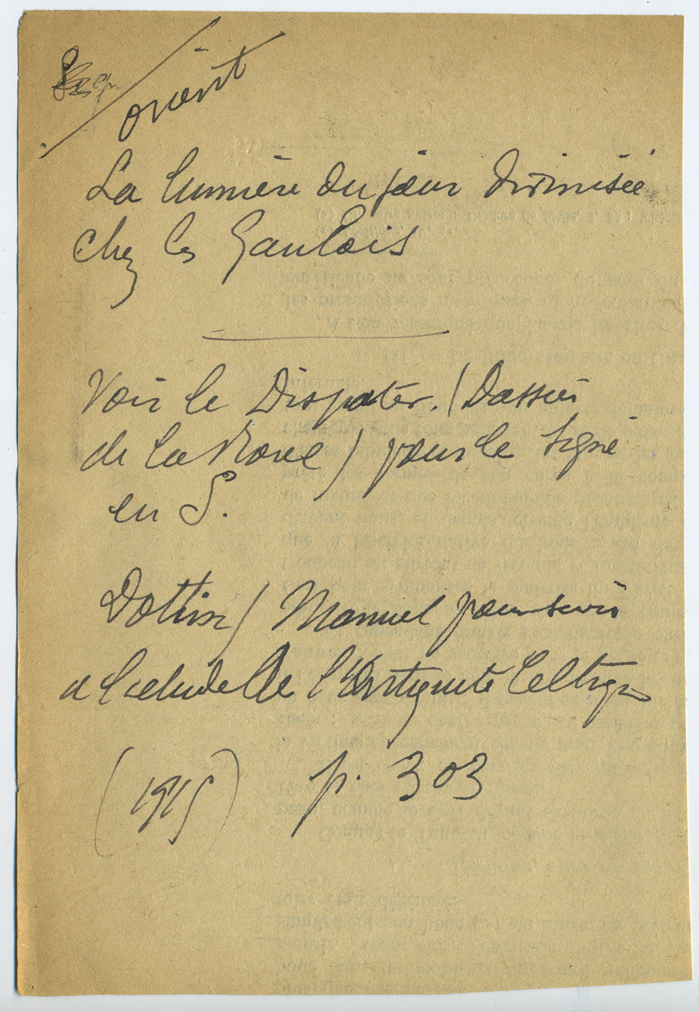 orient
La lumière du jour divinisée
chez les Gaulois
Voir le Dispater. (Dossier
de la Roue) pour le signe
en S.
Dottin / Manuel pour servir
a l'etude de l'Antiquité Celtique
(1915) p. 303